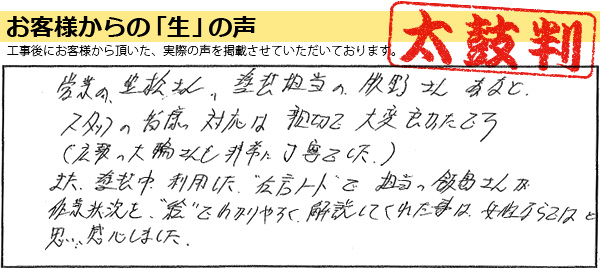 お客様からの「生」の声
工事後にお客様から頂いた、実際の声を掲載させていただいております。
太鼓判
営業の さん、塗装担当の 野さん など、
スタッフの皆様の対応は親切で大変良かったです
(広報の大輪さんも非常に丁寧でした。)
また、塗装中利用した、"伝言ノート"で担当の飯島さんが
作業状況を、"絵"でわかりやすく、解説してくれた事は、女性ならではと
思い、感心しました。